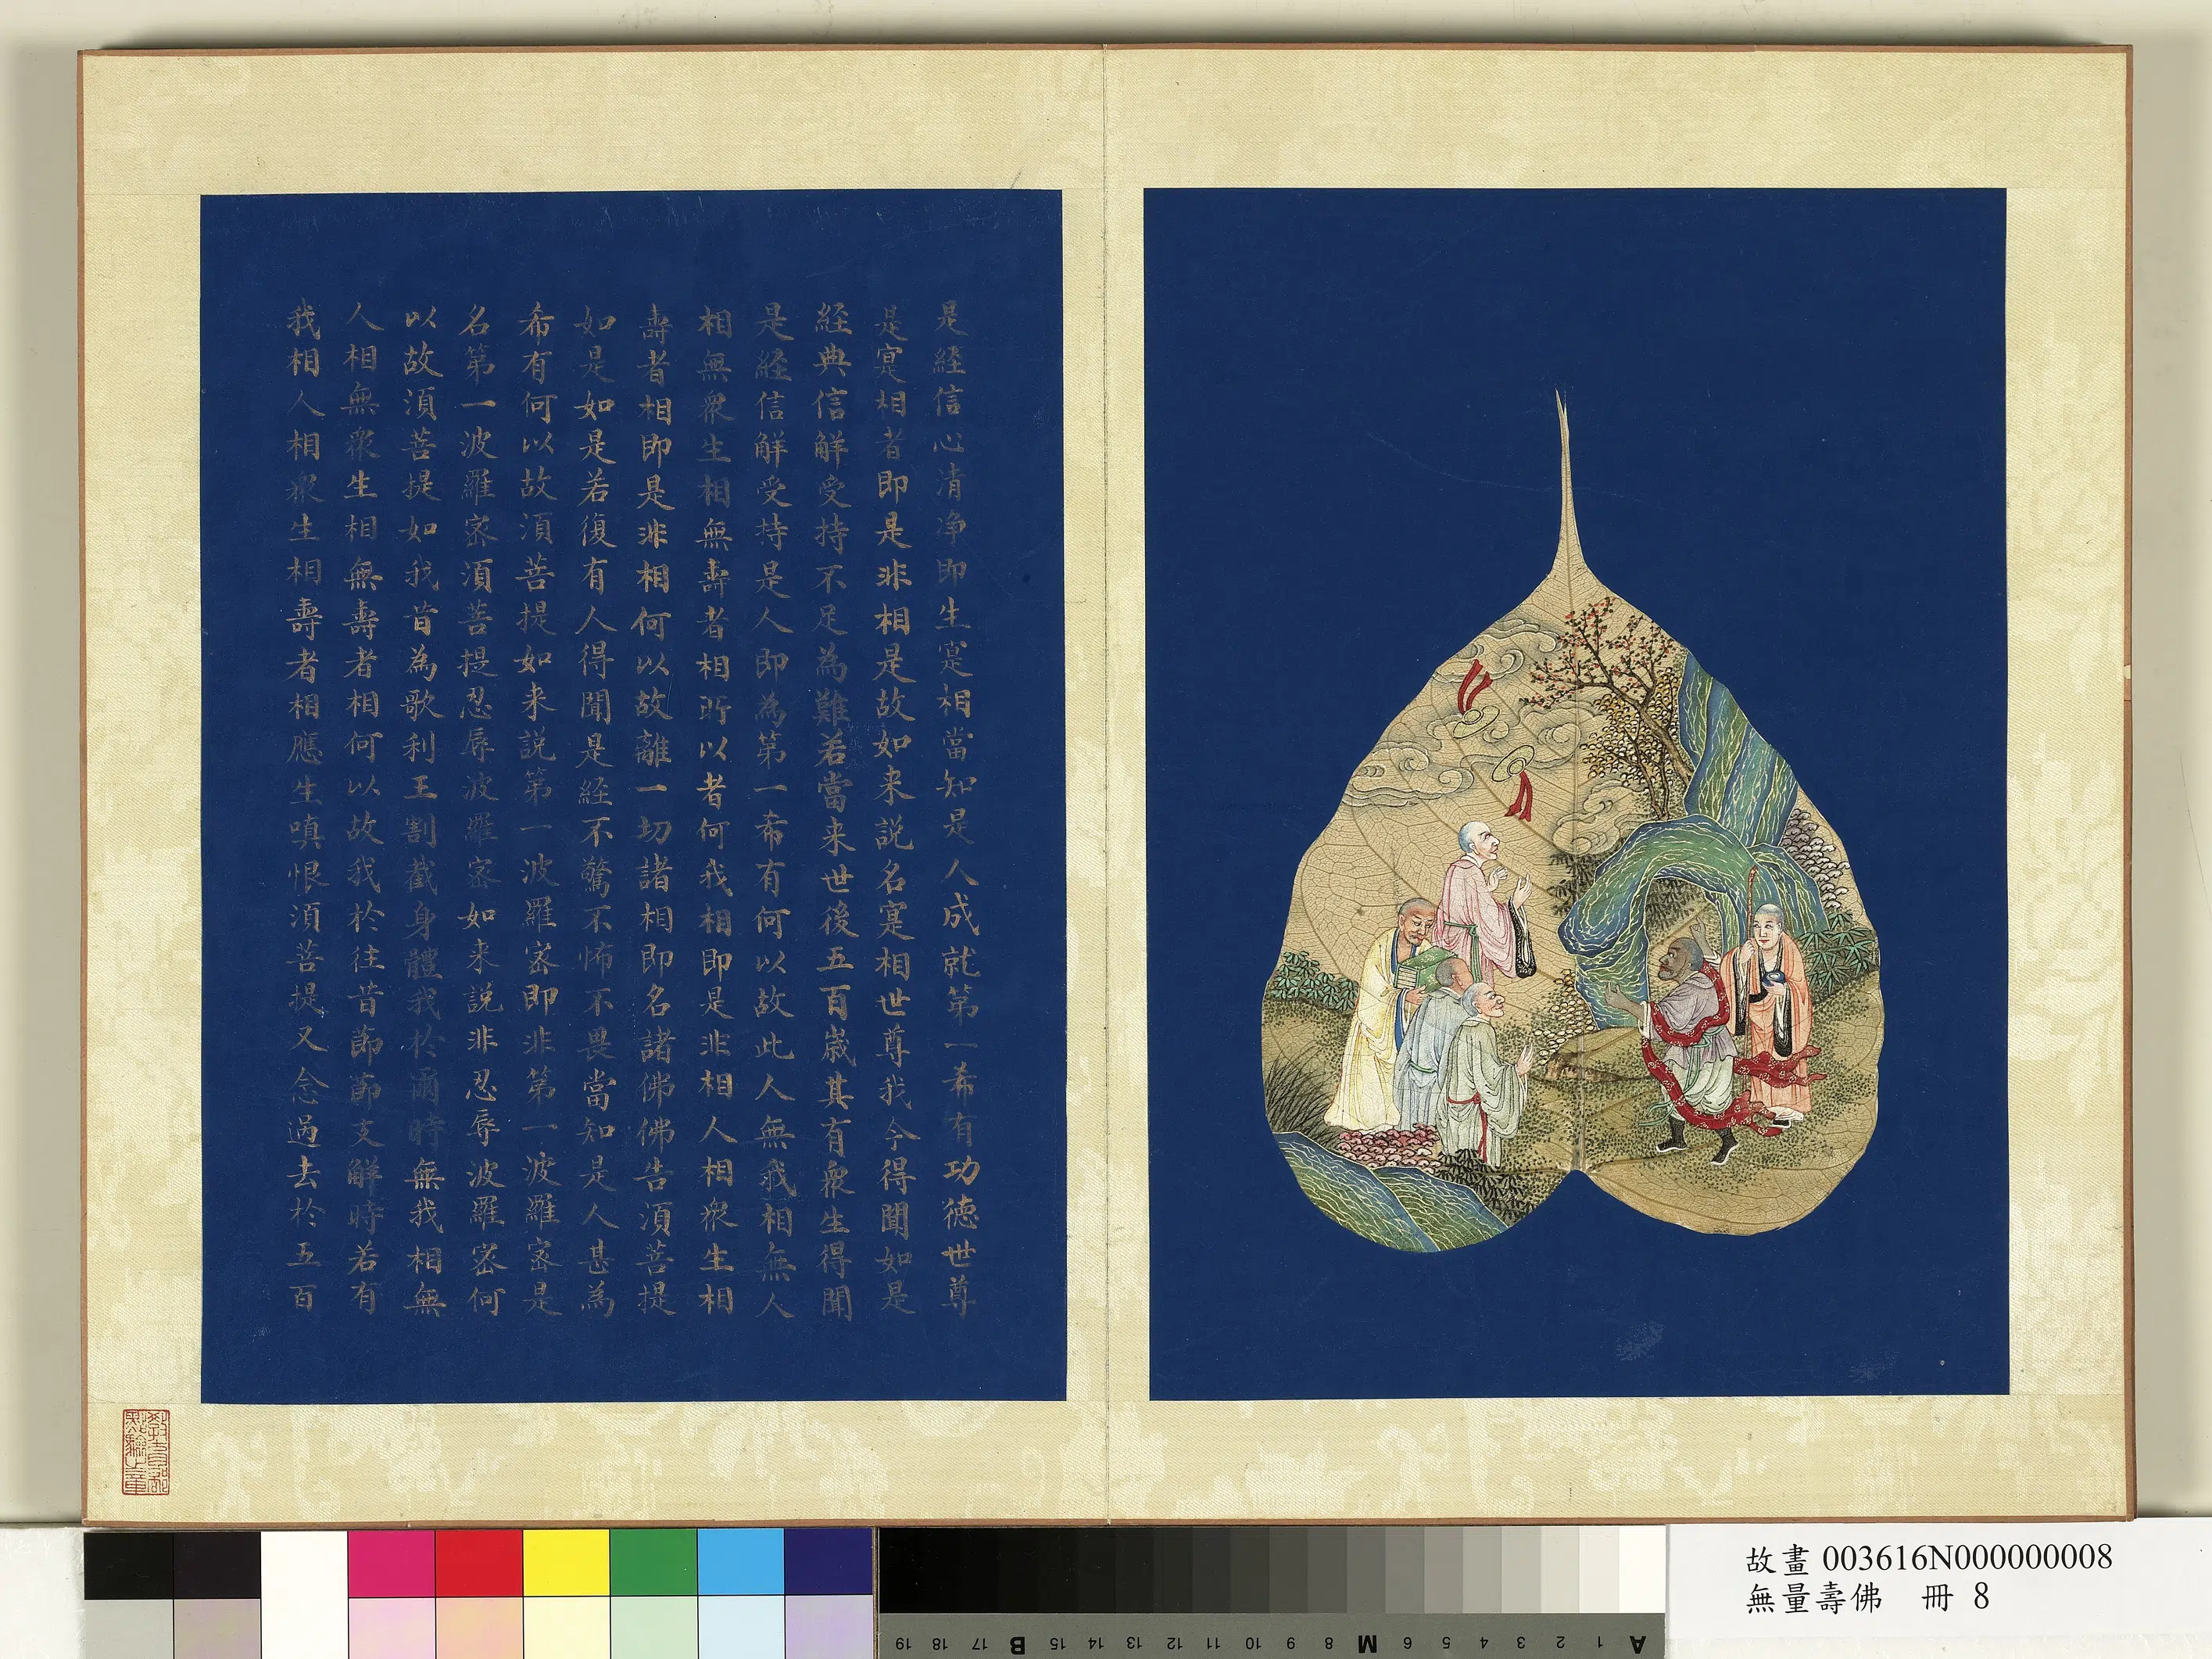 是経信心清净即生寔相當知是人成就第一希有功徳世尊
是寔相者即是非相是故如来説名寔相世尊我今得聞如是
経典信解受持不足為難若當来世後五百嵗其有衆生得聞
是経信解受持是人即為第一希有何以故此人無我相無人
相無衆生相無壽者相所以者何我相即是非相人相衆生相
壽者相即是非相何以故離一切諸相即名諸佛佛告須菩提
如是如是若復有人得聞是経不驚不怖不畏當知是人甚為
希有何以故須菩提如来説第一波羅宻即非第一波羅宻是
名第一波羅宻須菩提忍辱波羅宻如来説非忍辱波羅宻何
以故須菩提如我昔為歌利王割截身體我於爾時無我相無
人相無衆生相無壽者相何以故我於往昔莭莭支解時若有
我相人相衆生相壽者相應生嗔恨須菩提又念過去於五百
教育部
點驗之章
故畫 003616N000000008
無量壽佛 冊 8
A 1 2 3 4 5 6 M 8 9 10 11 12 13 14 15 B 17 18 19